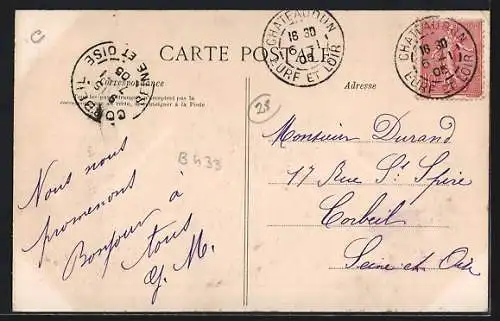 C
CHATEAUDUN
16 30
6 -1
05
EURE ET LOIR
CHATEAUDUN
16 30
6 -1
05
EURE ET LOIR
CARTE POSTALE
CORBEIL
SEINE ET OISE
05
Correspondance
Adresse
23
B 433
Nous nous
promenons
Bonjour à
tous
G. M.
Monsieur Durand
17 Rue St Spire
Corbeil
Seine et Oise